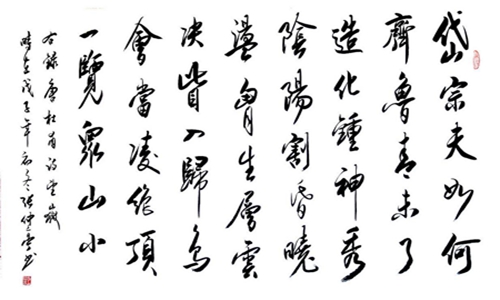 岱宗夫如何
齊魯青未了
造化鍾神秀
陰陽割昏曉
盪胷生層雲
决眥入歸鳥
會當凌絶頂
一覽眾山小
右錄唐杜甫詩望嶽
時在戊子年初冬張仲書